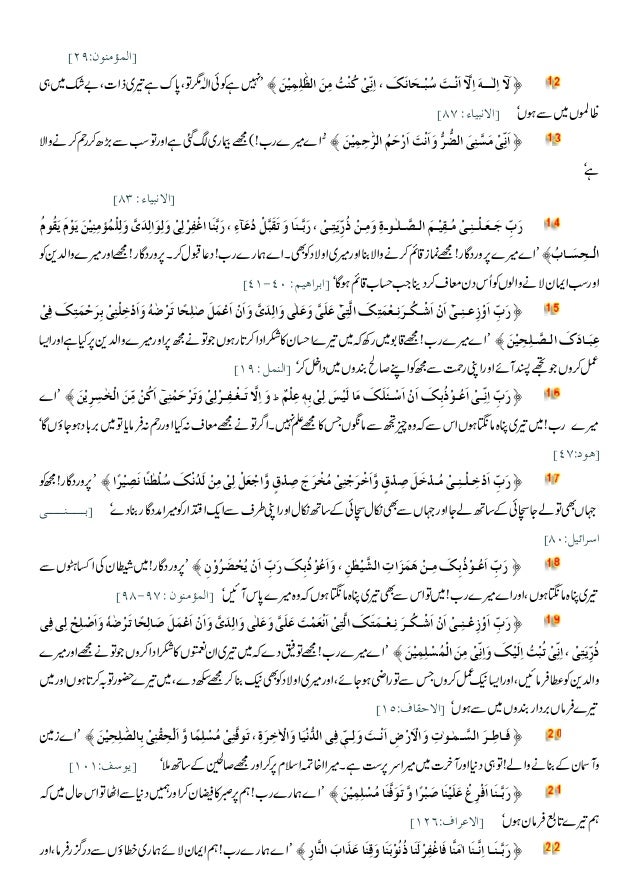 [المؤمنون:۲۹]
12 ﴿ لَآ اِلٰـهَ اِلَّآ اَنْـتَ سُبْـحَانَكَ ، اِنِّىْ كُنْتُ مِنَ الظّٰلِمِيْنَ ﴾ ’نہیں ہے کوئی الٰہ مگر تو، پاک ہے تیری ذات، بے شک میں ہی
ظالموں میں سے ہوں‘ [الانبیاء: ۸۷]
13 ﴿ اَنِّىْ مَسَّنِىَ الضُّرُّ وَاَنْتَ اَرْحَمُ الرّٰحِمِيْنَ ﴾ ’’اے میرے رب!) مجھے بیماری لگ گئی ہے اور تو سب سے بڑھ کر رحم کرنے والا
ہے‘
[الانبیاء: ۸۳]
14 رَبِّ جَعَـلْنِـىْ مُقِيْـمَ الصَّـلٰـوةِ وَمِـنْ ذُرِّيَّتِىْ ، رَبَّـنَا وَ تَقَبَّلْ دُعَآءِ ، رَبَّنَا اغْفِرْلِىْ وَلِوَالِدَىَّ وَلِلْمُؤْمِنِيْنَ يَوْمَ يَقُوْمُ
الْـحِسَابُ﴾ ’اے میرے پروردگار! مجھے نماز قائم کرنے والا بنا اور میری اولاد کو بھی۔ اے ہمارے رب! دعا قبول کر۔ پروردگار! مجھے اور میرے والدین کو
اور سب ایمان لانے والوں کو اُس دن معاف کر دینا جب حساب قائم ہوگا‘ [ابراھیم: ۴۰-۴۱]
15 ﴿ رَبِّ اَوْزِعْنِـىْٓ اَنْ اَشْكُـرَ نِعْمَتَكَ الَّتِىْٓ عَلَىَّ وَعَلٰى وَالِدَىَّ وَاَنْ اَعْمَلَ صَالِحًا تَرْضٰهُ وَاَدْخِلْنِىْ بِرَحْمَتِكَ فِىْ
عِبَادِكَ الصّٰـلِحِيْنَ ﴾ ’اے میرے رب! مجھے قابو میں رکھ کہ میں تیرے احسان کا شکر ادا کرتا رہوں جو تو نے مجھ پر اور میرے والدین پر کیا ہے اور ایسا
عمل کروں جو تجھے پسند آئے اور اپنی رحمت سے مجھ کو اپنے صالح بندوں میں داخل کر‘ [النمل: ۱۹]
16 ﴿ رَبِّ اِنِّـىْٓ اَعُـوْذُبِكَ اَنْ اَسْئَلَكَ مَا لَيْسَ لِىْ بِهٖ عِلْمٌ ط وَ اِلَّا تَـغْـفِـرْلِىْ وَتَرْحَمْنِىْٓ اَكُنْ مِّنَ الْخٰسِرِيْنَ ﴾ ’اے
میرے رب! میں تیری پناہ مانگتا ہوں اس سے کہ وہ چیز تجھ سے مانگوں جس کا مجھے علم نہیں۔ اگر تو نے مجھے معاف نہ کیا اور رحم نہ فرمایا تو میں برباد ہوجاؤں گا‘
[ھود:۴۷]
17 ﴿ رَبِّ اَدْخِـلْـنِـىْ مُـدْخَلَ صِدْقٍ وَّاَخْرِجْنِىْ مُخْرَجَ صِدْقٍ وَّاجْعَلْ لِىْ مِنْ لَدُنْكَ سُلْطٰنًا نَصِيْرًا ﴾ ’پروردگار! مجھ کو
جہاں بھی تو لے جا سچائی کے ساتھ لے جا اور جہاں سے بھی نکال سچائی کے ساتھ نکال اور اپنی طرف سے ایک اقتدار کو میرا مددگار بنا دے‘ [بــنــی
اسرائیل: ۸۰]
18 ﴿ رَبِّ اَعُـوْذُبِكَ مِـنْ هَمَزَاتِ الشَّيْطٰنِ ، وَاَعُوْذُبِكَ رَبِّ اَنْ يُحْضَرُوْنِ ﴾ ’پروردگار! میں شیطان کی اکساہٹوں سے
تیری پناہ مانگتا ہوں، اور اے میرے رب! میں تو اس سے بھی تیری پناہ مانگتا ہوں کہ وہ میرے پاس آئیں‘ [المؤمنون: ۹۷-۹۸]
19 ﴿ رَبِّ اَوْزِعْـنِـىْٓ اَنْ اَشْـكُـرَ نِعْـمَتَكَ الَّتِىْٓ اَنْعَمْتَ عَلَىَّ وَعَلٰى وَالِدَىَّ وَاَنْ اَعْمَلَ صَالِحًا تَرْضٰهُ وَاَصْلِحْ لِىْ فِىْ
ذُرِّيَّتِىْ ، اِنِّىْ تُبْتُ اِلَيْكَ وَاِنِّىْ مِنَ الْمُسْلِمِيْنَ ﴾ ’اے میرے رب! مجھے توفیق دے کہ میں تیری ان نعمتوں کا شکر ادا کروں جو تو نے مجھے اور میرے
والدین کو عطا فرمائیں، اور ایسا نیک عمل کروں جس سے تو راضی ہوجائے، اور میری اولاد کو بھی نیک بنا کر مجھے سکھ دے، میں تیرے حضور توبہ کرتا ہوں اور میں
تیرے فرماں بردار بندوں میں سے ہوں‘ [الاحقاف: ۱۵]
20 ﴿ فَـاطِـرَ السَّمٰوٰتِ وَالْاَرْضِ اَنْتَ وَلِـىّٖ فِى الدُّنْيَا وَالْاٰخِرَةِ، تَوَفَّنِىْ مُسْلِمًا وَّ اَلْحِقْنِىْ بِالصّٰلِحِيْنَ ﴾ ’اے زمین
وآسمان کے بنانے والے! تو ہی دنیا اور آخرت میں میرا سرپرست ہے۔ میرا خاتمہ اسلام پر کر اور مجھے صالحین کے ساتھ ملا‘ [یوسف: ۱۰۱]
21 ﴿ رَبَّـنَا اَفْـرِغْ عَلَيْنَا صَبْرًا وَّ تَوَفَّنَا مُسْلِمِيْنَ ﴾ ’اے ہمارے رب! ہم پر صبر کا فیضان کر اور ہمیں دنیا سے اٹھا تو اس حال میں کہ
ہم تیرے تابع فرمان ہوں‘ [الاعراف: ۱۲۶]
22 ﴿ رَبَّـنَا اِنَّـنَا اٰمَنَّا فَاغْفِرْلَنَا ذُنُوْبَنَا وَقِنَا عَذَابَ النَّارِ ﴾ ’اے ہمارے رب! ہم ایمان لائے ہماری خطاؤں سے درگزر فرما، اور